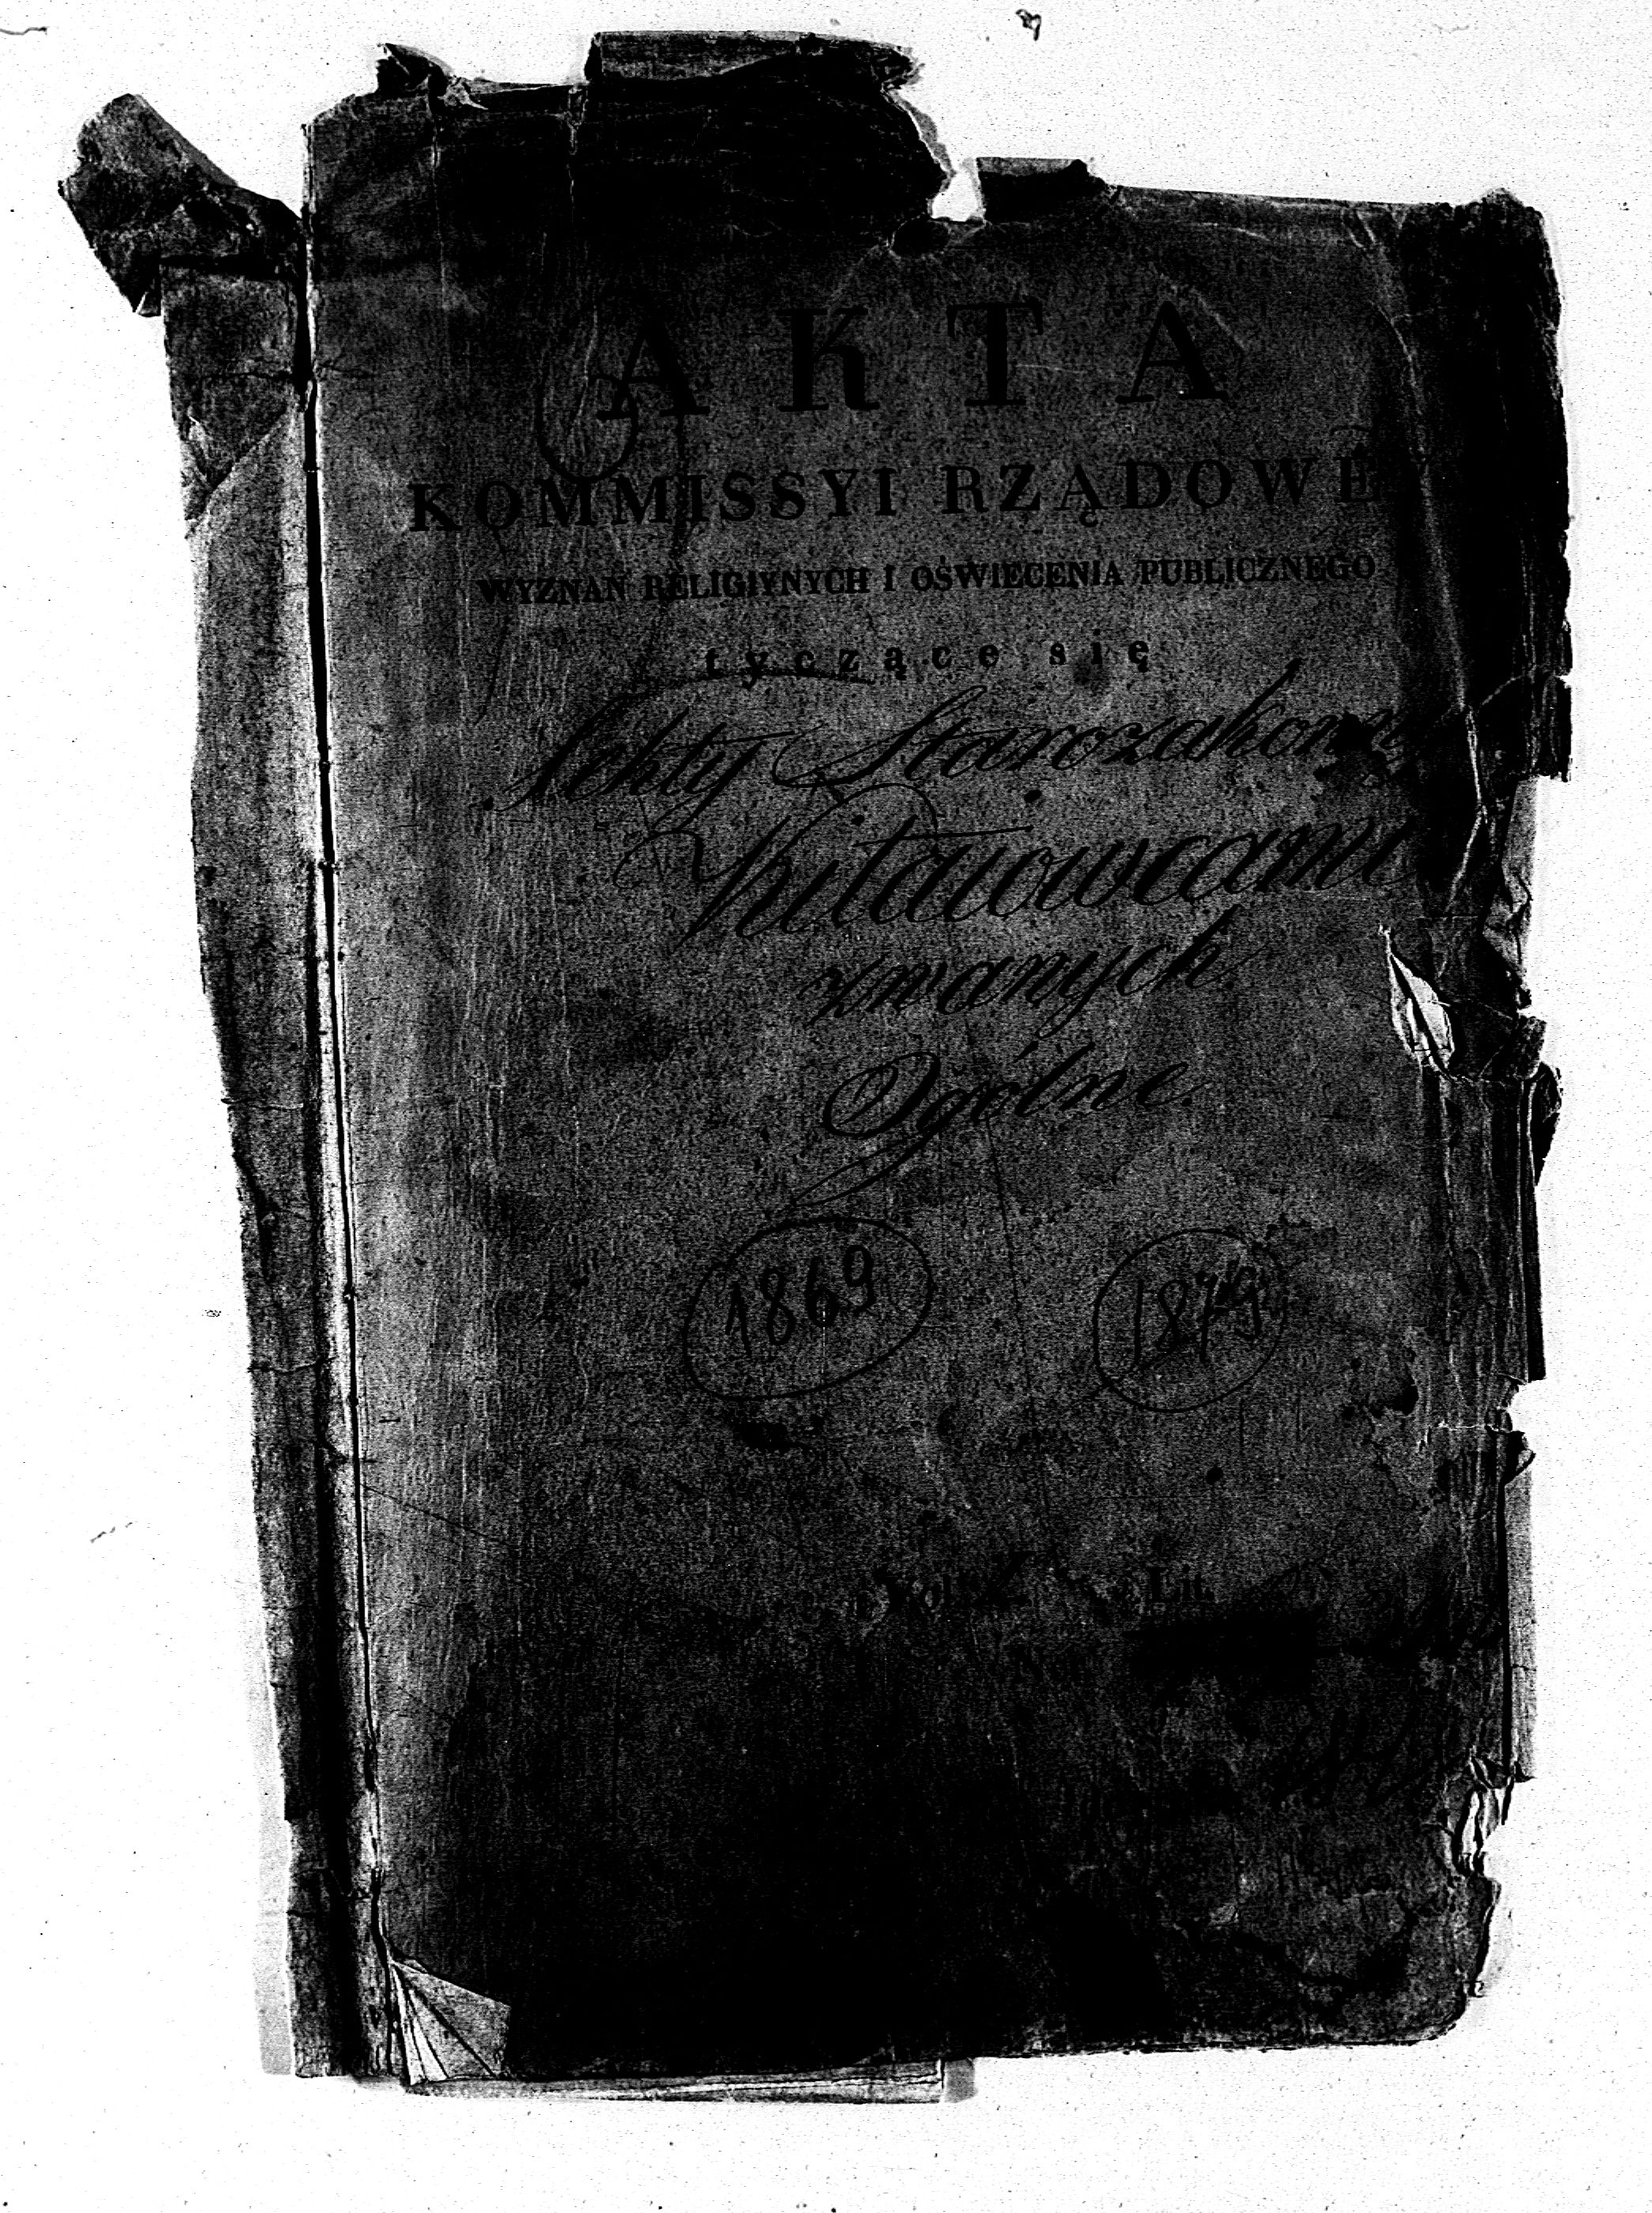 AKTA
KOMMISSYI RZĄDOWE
WYZNAŃ RELIGIYNYCH I OŚWIECENIA PUBLICZNEGO
tyczące się
Sekty Starozakonny
Kitaiowcami
zwanych.
Ogólne.
1869 1879
Vol: Lit.